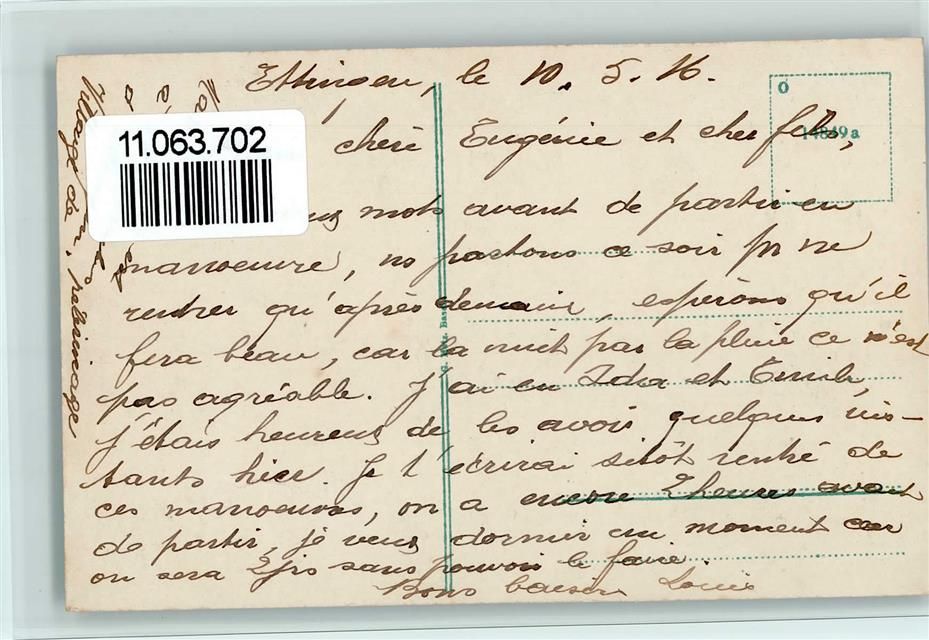 Ettingen, le 10. 5. 16.
chère Eugénie et cher fils,
mots avant de partir en
manoeuvre, ns partons ce soir pr ne
rentrer qu'après demain, espérons qu'il
fera beau, car la nuit par la pluie ce n'est
pas agréable. J'ai eu Ida et Emile,
j'étais heureux de les avoir quelques ins-
tants hier. Je t'écrirai sitôt rentré de
ces manoeuvres, on a encore 2 heures avant
de partir, je veux dormir un moment car
on sera 2 jrs sans pouvoir le faire.
Bons baisers Louis
Village de pélerinage
11.063.702
14849a